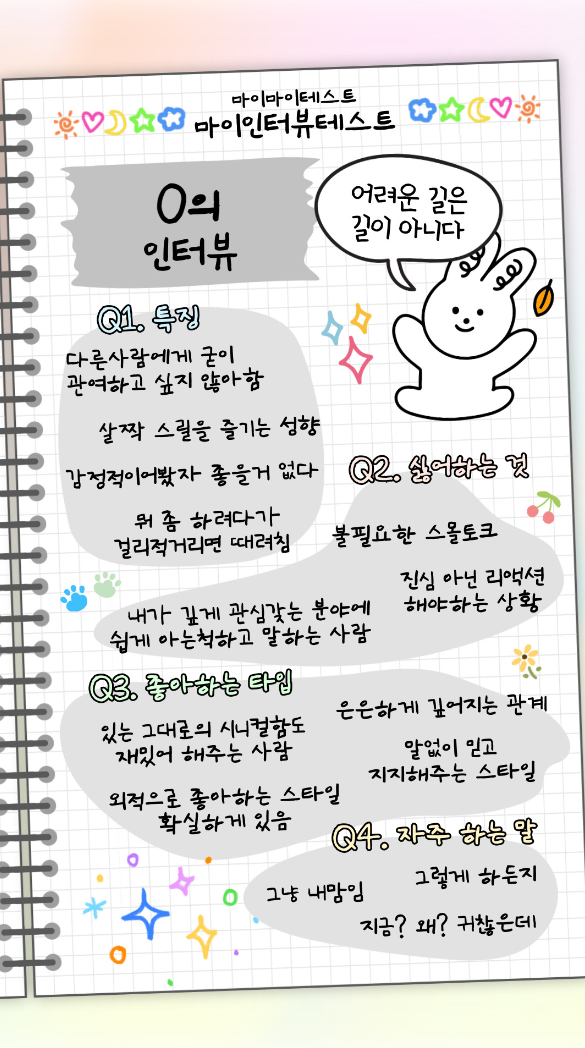 마이마이테스트
마이인터뷰테스트
O의
인터뷰
어려운 길은
길이 아니다
Q1. 특징
다른사람에게 굳이
관여하고 싶지 않아함
살짝 스릴을 즐기는 성향
감정적이어봤자 좋을거 없다
뭐 좀 하려다가
걸리적거리면 때려침
Q2. 싫어하는 것
불필요한 스몰토크
진심 아닌 리액션
해야하는 상황
내가 깊게 관심갖는 분야에
쉽게 아는척하고 말하는 사람
Q3. 좋아하는 타입
있는 그대로의 시니컬함도
재밌어 해주는 사람
은은하게 깊어지는 관계
말없이 믿고
지지해주는 스타일
외적으로 좋아하는 스타일
확실하게 있음
Q4. 자주 하는 말
그냥 내맘임
그렇게 하든지
지금? 왜? 귀찮은데